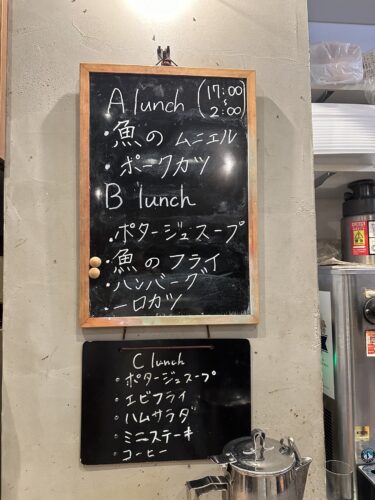 A lunch (17:00
〜
2:00)
・魚の ムニエル
・ポークカツ
B lunch
・ポタージュスープ
・魚のフライ
・ハンバーグ
・一口カツ
C lunch
・ポタージュスープ
・エビフライ
・ハムサラダ
・ミニステーキ
・コーヒー